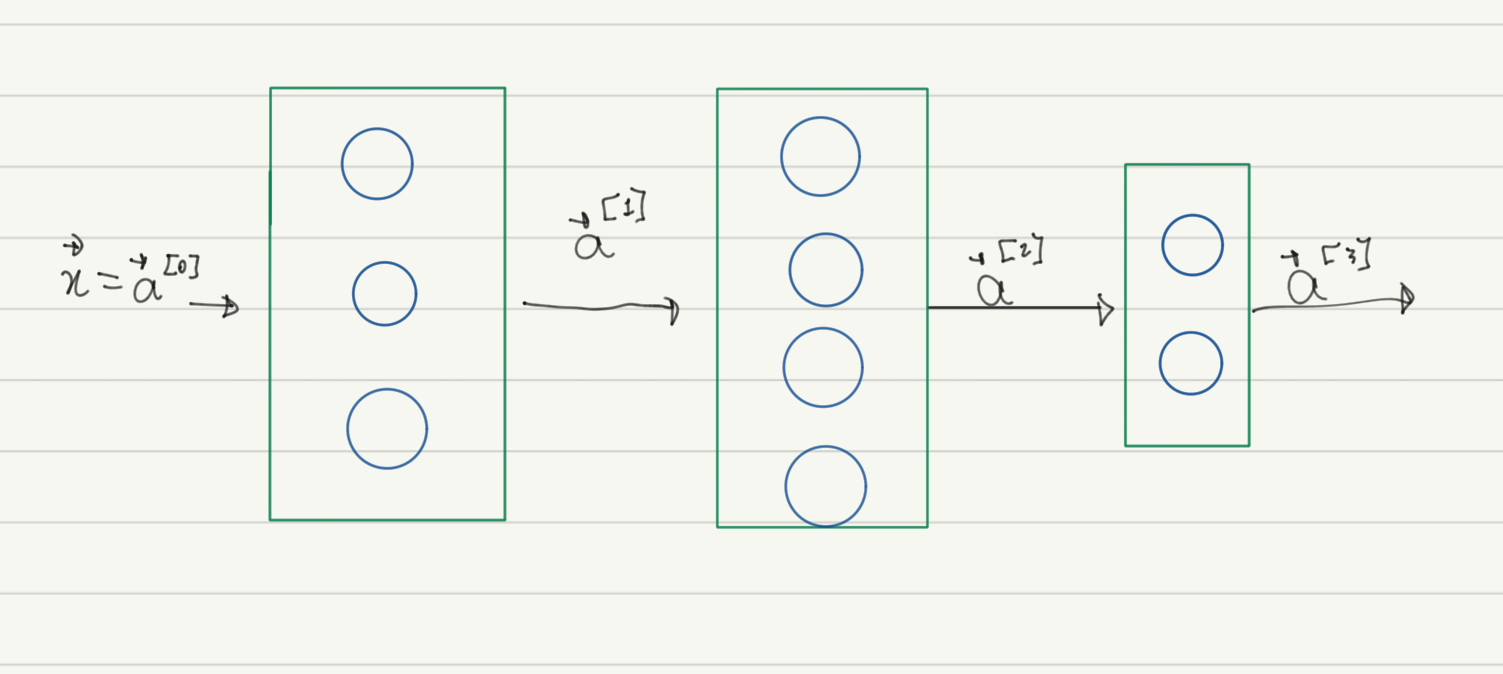 x⃗ = a⃗^[0]
a⃗^[1]
a⃗^[2]
a⃗^[3]